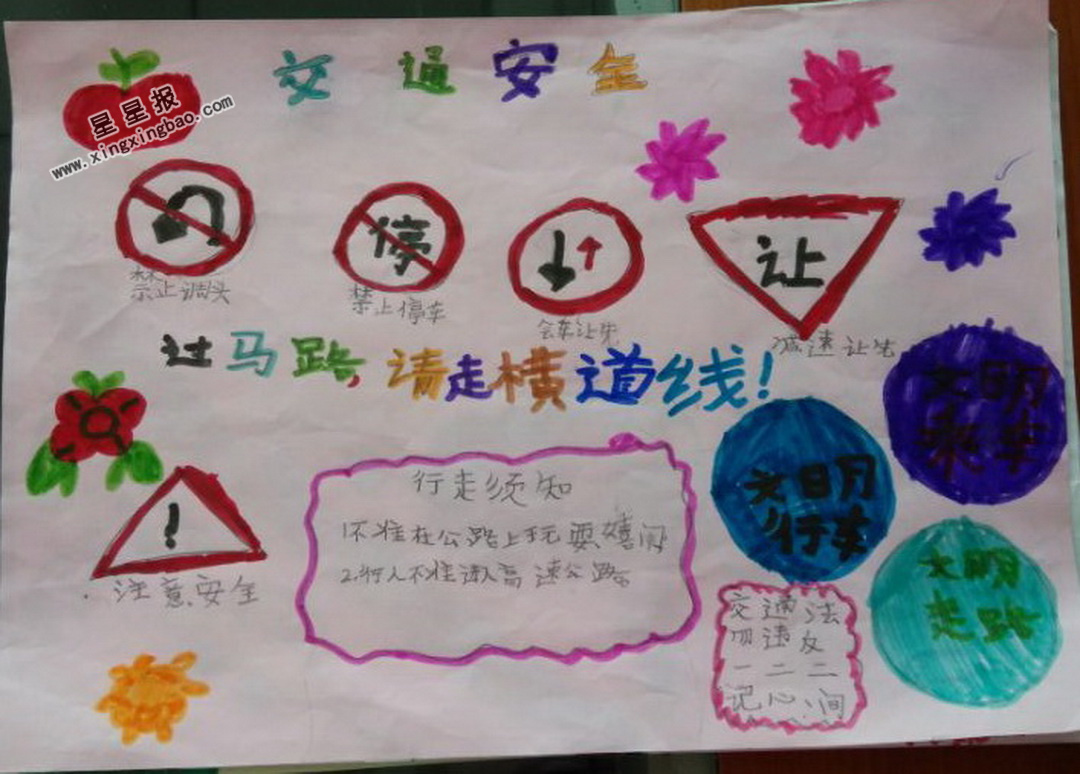 交通安全
星星报
www.xingxingbao.com
禁止调头
停
禁止停车
会车让先
让
减速让先
过马路,请走横道线!
文明
乘车
文明
行车
文明
走路
!
注意安全
行走须知
1.不准在公路上玩耍嬉闹
2.行人不准进入高速公路
交通法
勿违反
一二二
记心间